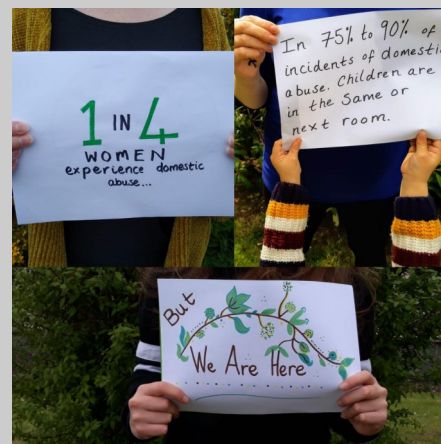 1 IN 4
WOMEN
experience domestic
abuse...
In 75% to 90% of
incidents of domestic
abuse. Children are
in the same or
next room.
But
We Are Here